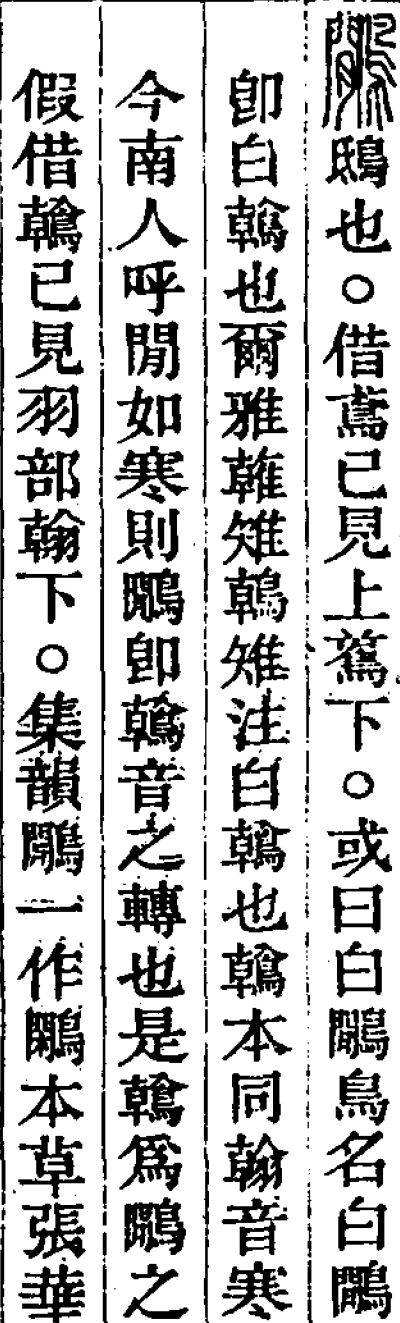 鴟也○借鳶已見上下○或曰白鷴鳥名白鷴
卽白鶾也爾雅雗雉鶾雉注白鶾也鶾本同翰音寒
今南人呼閒如寒則鷴卽鶾音之轉也是鶾爲鷴之
假借鶾已見羽部翰下○集韻鷴一作鷳本草張華